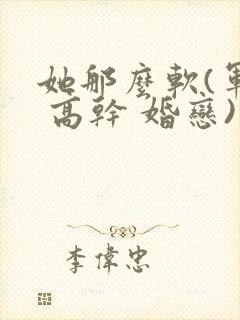 她那麼軟(軍
高幹 婚戀)
李偉忠